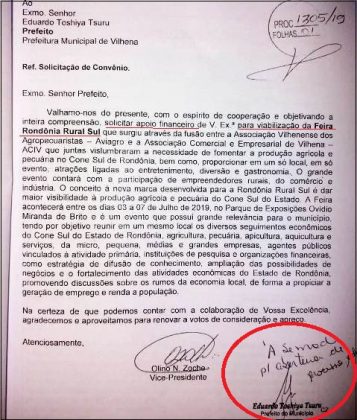 Ao
Exmo. Senhor
Eduardo Toshiya Tsuru
Prefeito
Prefeitura Municipal de Vilhena
PROC 1305/19
FOLHAS 01
Ref. Solicitação de Convênio.
Exmo. Senhor Prefeito,
Valhamo-nos do presente, com o espírito de cooperação e objetivando a
inteira compreensão, solicitar apoio financeiro de V. Ex.ª para viabilização da Feira
Rondônia Rural Sul que surgiu através da fusão entre a Associação Vilhenense dos
Agropecuaristas – Aviagro e a Associação Comercial e Empresarial de Vilhena –
ACIV que juntas vislumbraram a necessidade de fomentar a produção agrícola e
pecuária no Cone Sul de Rondônia, bem como, proporcionar em um só local, em
um evento, atrações ligadas ao entretenimento, diversão e gastronomia. O grande
evento contará com a participação de empreendedores rurais, do comércio e
indústria. O conceito à nova marca desenvolvida para a Rondônia Rural Sul é dar
maior visibilidade à produção agrícola e pecuária do Cone Sul do Estado. A Feira
acontecerá entre os dias 03 à 07 de Julho de 2019, no Parque de Exposições Ovídio
Miranda de Brito e é um evento que possui grande relevância para o município,
tendo por objetivo reunir em um mesmo local os diversos seguimentos econômicos
do Cone Sul do Estado de Rondônia, agricultura, pecuária, apicultura, aquicultura e
serviços, da micro, pequena, médias e grandes empresas, agentes públicos
vinculados à atividade primária, instituições de pesquisa e organizações financeiras,
como estratégia de difusão de conhecimento, ampliação das possibilidades de
negócios e o fortalecimento das atividades econômicas do Estado de Rondônia,
promovendo discussões sobre os rumos da economia local, de forma a propiciar a
geração de emprego e renda a população.
Na certeza de que podemos contar com a colaboração de Vossa Excelência,
agradecemos e aproveitamos para renovar a votos de consideração e apreço.
Atenciosamente,
Olino N. Zoche
Vice-Presidente
À Semad
p/ abertura de
processo
Eduardo Toshiya Tsuru
Prefeito do Município